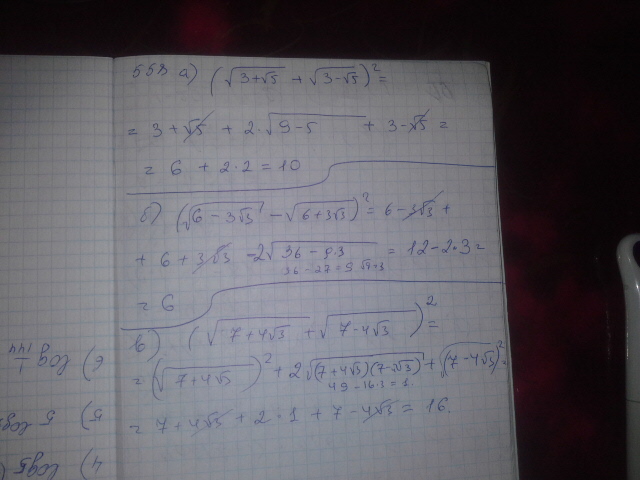 558 а) (√(3+√5) + √(3-√5))² =
= 3 + √5 + 2·√(9-5) + 3-√5 =
= 6 + 2·2 = 10
б) (√(6-3√3) - √(6+3√3))² = 6-3√3 +
+ 6 + 3√3 - 2√(36-9·3) = 12-2·3 =
36-27=9
= 6
в) (√(7+4√3) + √(7-4√3))² =
= (√(7+4√3))² + 2√((7+4√3)(7-4√3)) + (√(7-4√3))²
49-16·3=1.
= 7+4√3 + 2·1 + 7-4√3 = 16.
6) log 1/144
5) 5 log
4) log5